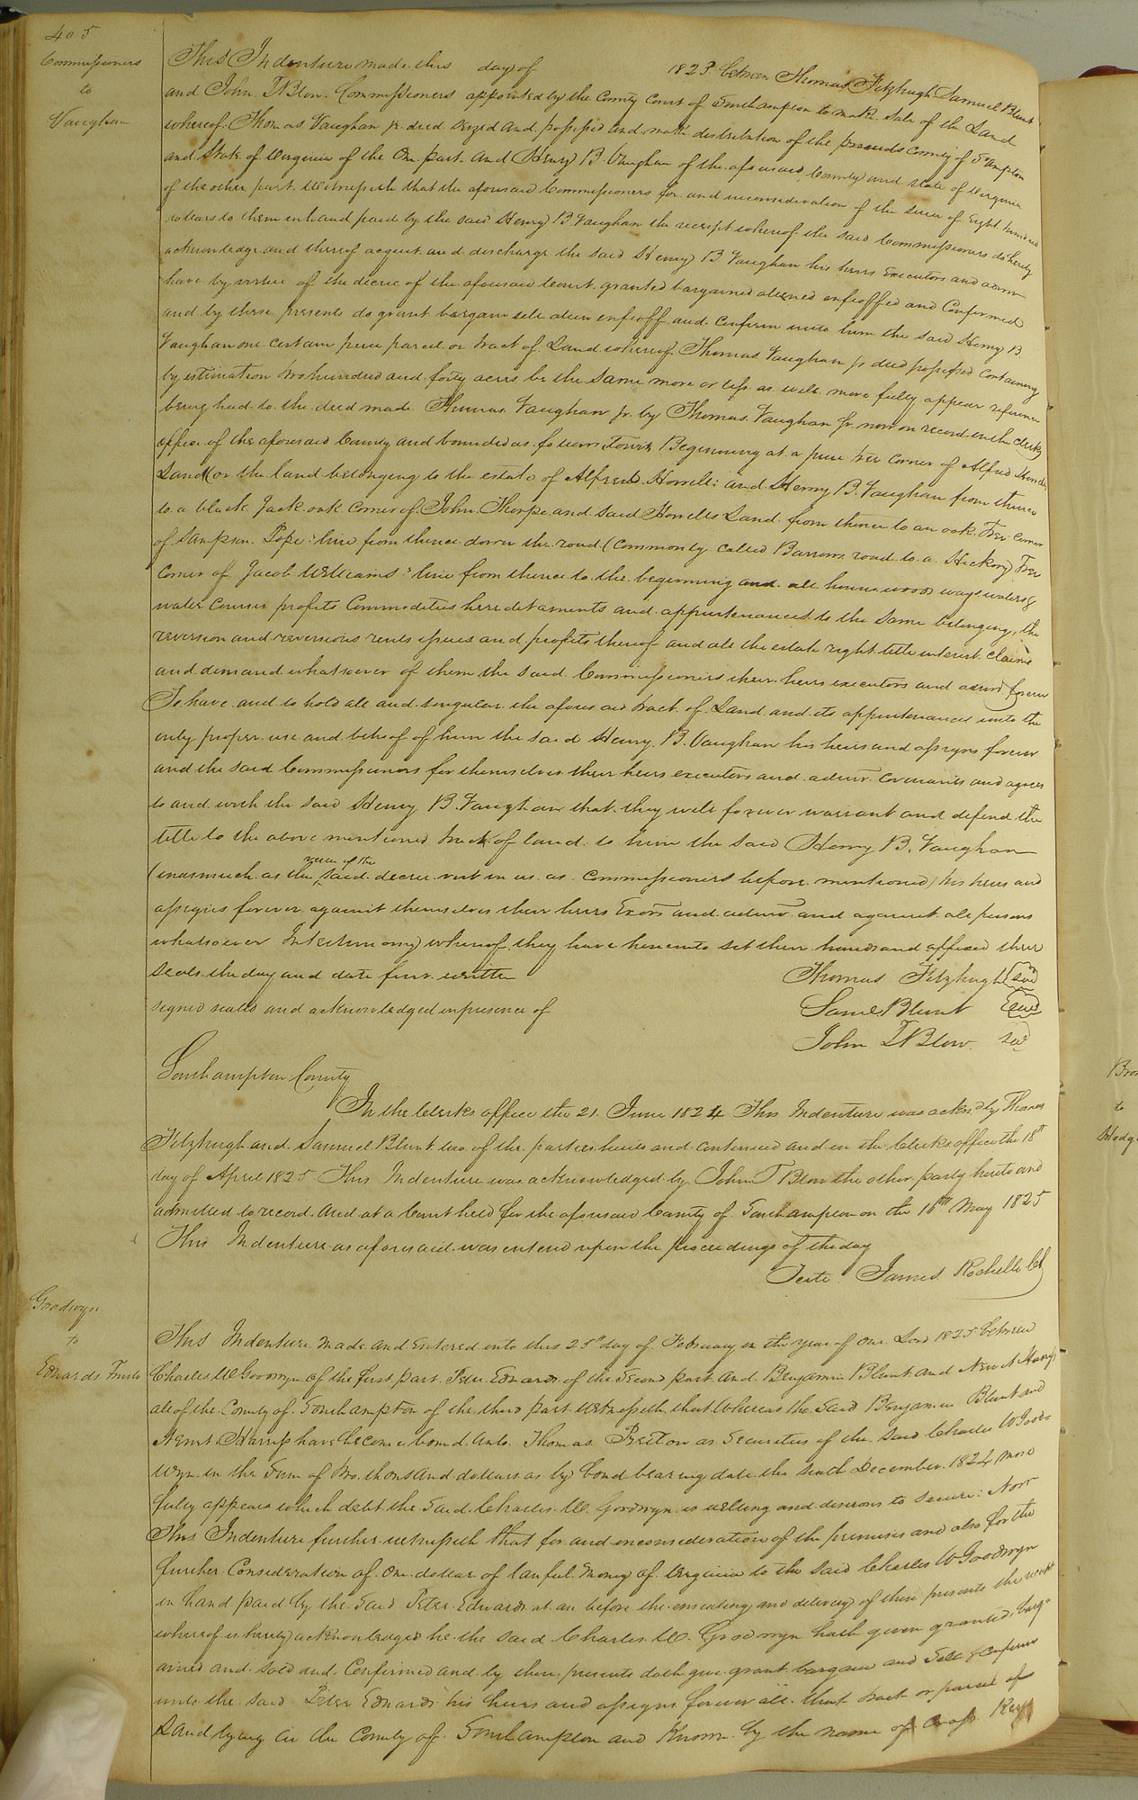 405
Commissioners
to
Vaughan
This Indenture made this day of 1825 between Thomas Fitzhugh Samuel Blunt
and John T Blow Commissioners appointed by the County Court of Southampton to make sale of the Land
whereof Thomas Vaughan jr. decd. seized and possessed and make distribution of the proceeds County of Sampton
and State of Virginia of the One part and Henry B. Vaughan of the aforesaid County and state of Virginia
of the other part Witnesseth that the aforesaid Commissioners for and inconsideration of the sum of Eight hundred
dollars to them inhand paid by the said Henry B Vaughan the receipt whereof the said Commissioners do hereby
acknowledge and thereof acquit and discharge the said Henry B Vaughan his heirs Executors and admr
have by virtue of the decree of the aforesaid Court granted bargained aliened enfeoffed and Confirmed
and by these presents do grant bargain sell alien enfeoff and Confirm unto him the said Henry B.
Vaughan one certain piece parcel or tract of Land whereof Thomas Vaughan jr decd possessed containing
by estimation two hundred and forty acres be the same more or less as will more fully appear reference
being had to the deed made Thomas Vaughan jr. by Thomas Vaughan Sr. now on record in the Clerks
office of the aforesaid County and bounded as follows Towit Beginning at a pine tree corner of Alfred
Land (or the land belonging to the estate of Alfred Howell: and Henry B. Vaughan from thence
to a black Jack oak Corner of John Thorpe and said Howells Land from thence to an oak Tree Corner
of Sampson Pope: line from thence down the road (Commonly called Barrows road to a Hickory Tree
Corner of Jacob Williams' line from thence to the beginning and all houses woods ways waters &
water courses profits Commodities hereditaments and appurtenances to the same belonging, the
reversion and reversions rents issues and profits thereof and all the estate right title interest claim
and demand whatsoever of them the said Commissioners their heirs executors and admr forever
To have and to hold all and singular the aforesaid tract of Land and its appurtenances unto the
only proper use and behoof of him the said Henry B. Vaughan his heirs and assigns forever
and the said Commissioners for themselves their heirs executors and admr. covenants and agrees
to and with the said Henry B. Vaughan that they will forever warrant and defend the
title to the above mentioned tract of land to him the said Henry B. Vaughan
(inasmuch as the said decree vest in us as Commissioners before mentioned) his heirs and
assigns forever against themselves their heirs Exors and admr. and against all persons
whatsoever Intestimony whereof they have hereunto set their hands and affixed their
seals the day and date first written Thomas Fitzhugh (seal)
signed sealed and acknowledged inpresence of Saml Blunt (seal)
John T Blow seal
Southampton County
In the Clerks office the 21 June 1824 This Indenture was acknd by Thomas
Fitzhugh and Samuel Blunt two of the parties hereto and continued and in the Clerks office the 18th
day of April 1825 This Indenture was acknowledged by John T Blow the other party hereto and
admitted to record. And at a Court held for the aforesaid County of Southampton on the 16th May 1825
This Indenture as aforesaid was entered upon the proceedings of the day
Teste James Rochelle Clk
Goodwyn
to
Edwards Trustee
This Indenture made and Entered into this 25th day of February in the year of our Lord 1825 between
Charles W Goodwyn of the first part Peter Edwards of the Second part and Benjamin Blunt and Newit Harris
all of the County of Southampton of the third part Witnesseth that Whereas the Said Benjamin Blunt and
Newit Harris have become bound unto Thomas Pretlow as Securities of the said Charles W Good
wyn in the Sum of two thousand dollars as by bond bearing date the December 1824 more
fully appears which debt the Said Charles W. Goodwyn is willing and desirous to Secure: Now
This Indenture further witnesseth that for and inconsideration of the premises and also for the
further Consideration of one dollar of lawful money of Virginia to the said Charles W Goodwyn
in hand paid by the Said Peter Edwards at an before the ensealing and delivery of these presents the
whereof is hereby acknowledged he the said Charles W. Goodwyn hath given granted, barg-
ained and sold and Confirmed and by these presents doth give grant bargain and Sell & Confirm
unto the said Peter Edwards his heirs and assigns forever all that tract or parcel of
Land lying in the County of Southampton and Known by the name of Cross Keys